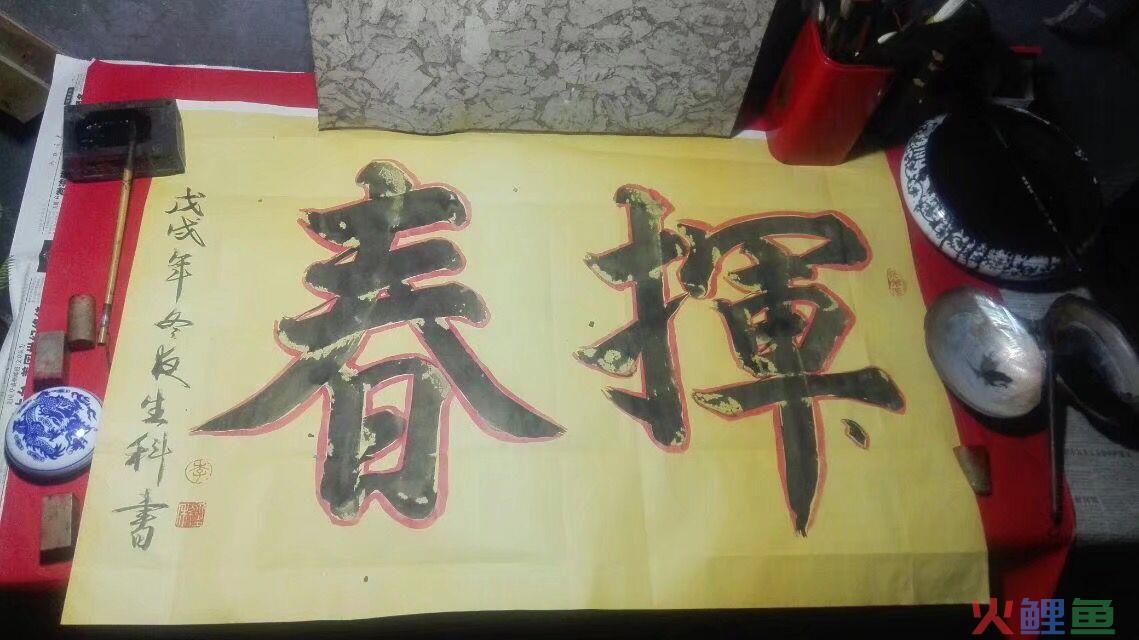 揮春
戊戌年冬夜生科書
李
火鲤鱼